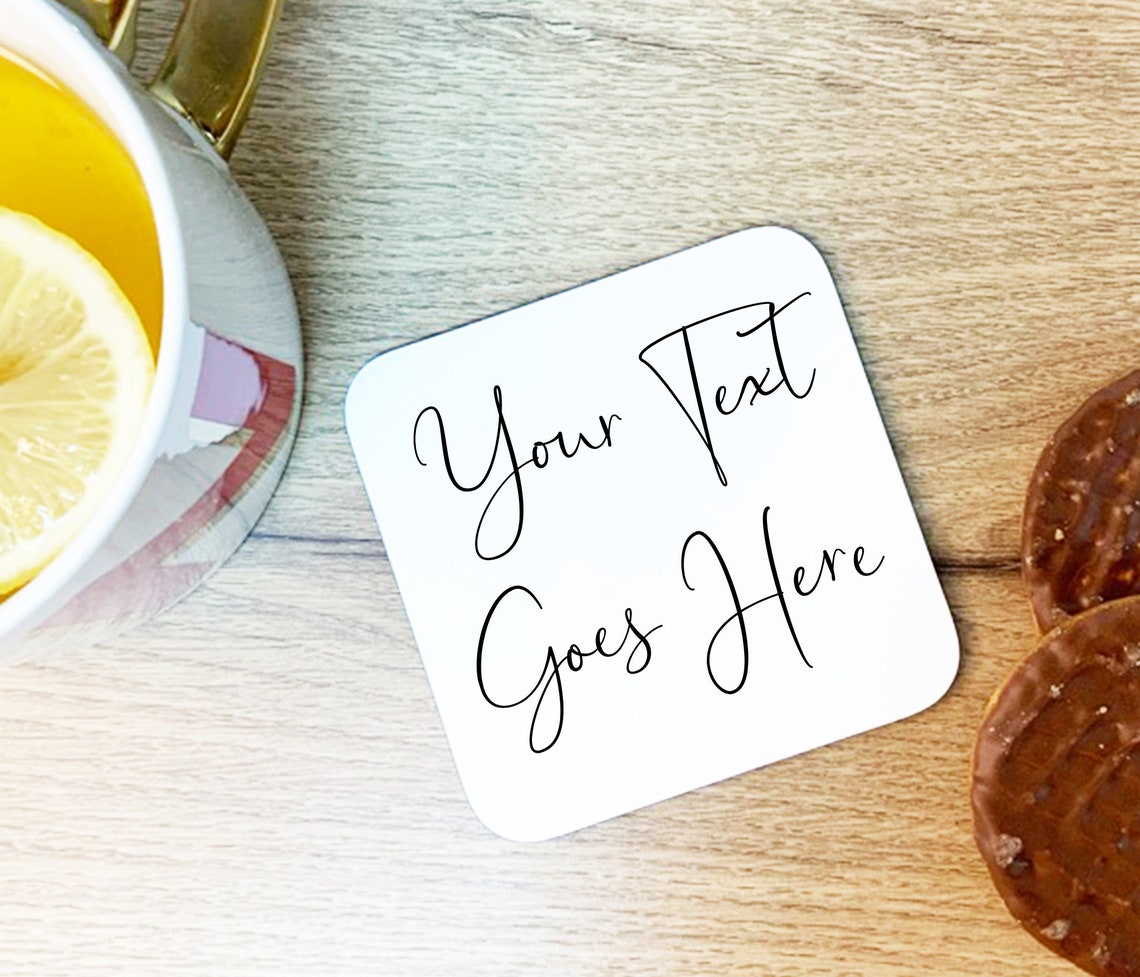 Your Text
Goes Here